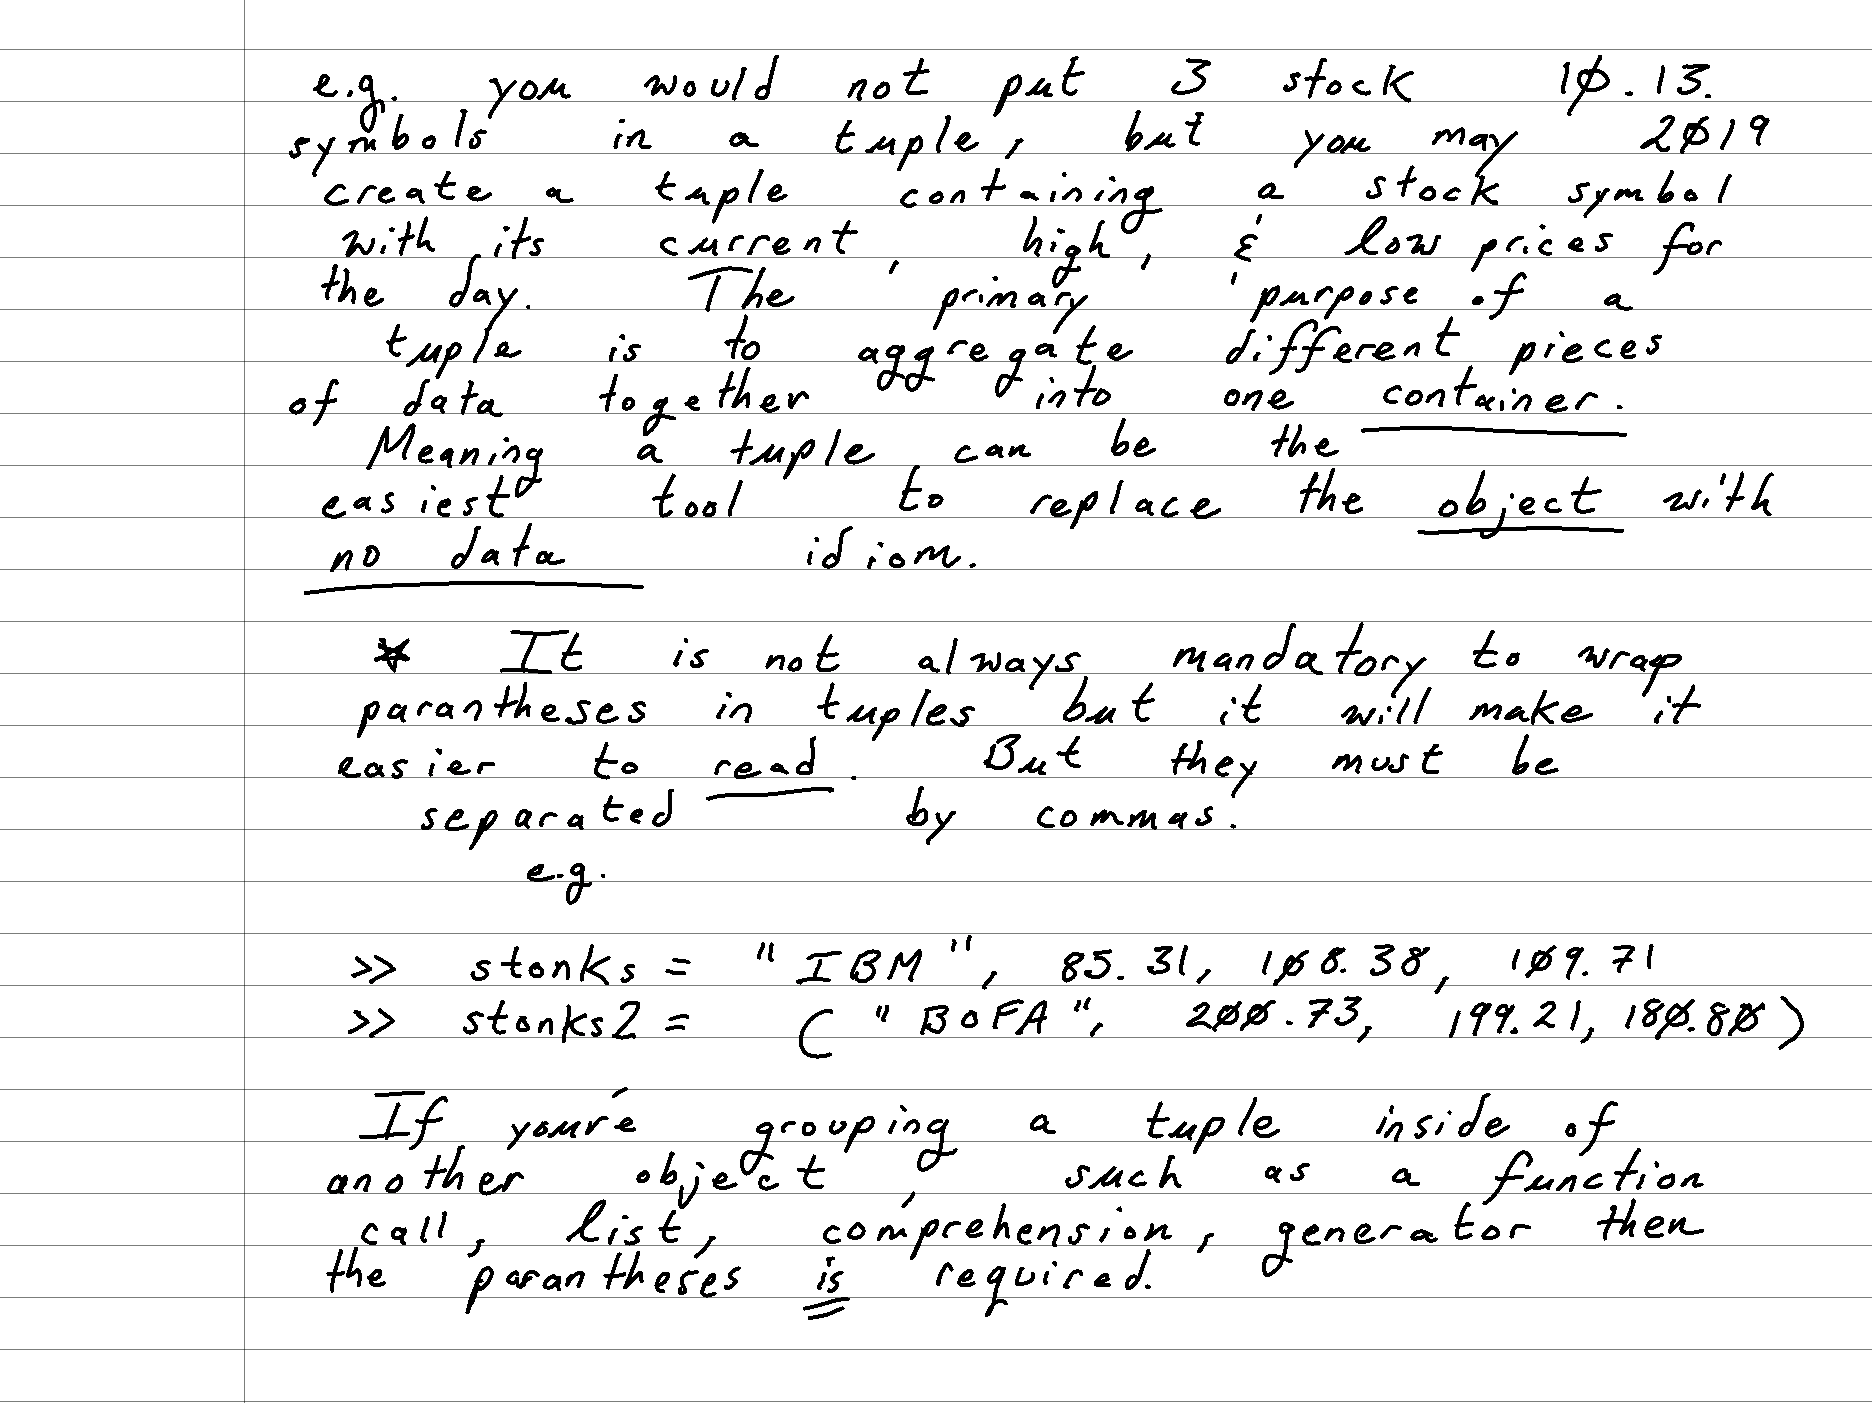 e.g. you would not put 3 stock 10.13.
symbols in a tuple, but you may 2019
create a tuple containing a stock symbol
with its current, high, & low prices for
the day. The primary purpose of a
tuple is to aggregate different pieces
of data together into one container.
Meaning a tuple can be the
easiest tool to replace the object with
no data idiom.
* It is not always mandatory to wrap
parantheses in tuples but it will make it
easier to read. But they must be
separated by commas.
e.g.
>> stonks = "IBM", 85.31, 108.38, 109.71
>> stonks2 = ("BOFA", 200.73, 199.21, 180.80)
If you're grouping a tuple inside of
another object, such as a function
call, list, comprehension, generator then
the parantheses is required.